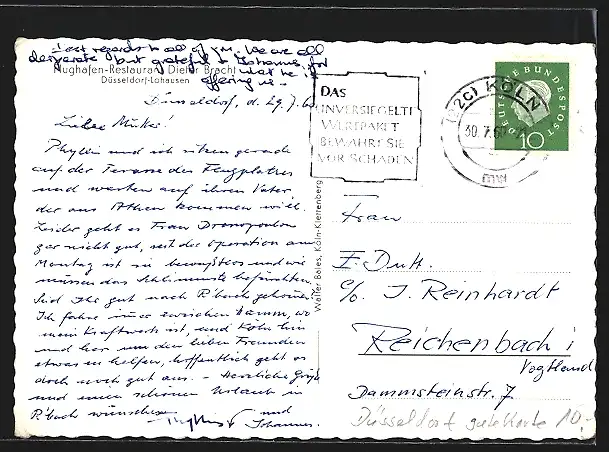 Best regards to all of you. We are all
desperate but grateful to Johannes for
what he is
offering us.
Flughafen-Restaurant Dieter Bracht
Düsseldorf-Lohausen
Düsseldorf, d. 29.7.60
Liebe Mutti!
Phyllis und ich sitzen gerade
auf der Terasse des Flugplatzes
und warten auf ihren Vater
der aus Athen kommen will.
Leider geht es Frau
gar nicht gut, seit der Operation am
Montag ist sie bewußtlos und wir
müssen das Schlimmste befürchten.
Seid Ihr gut nach R'bach gekommen?
Ich fahre immer zwischen Hamm, wo
mein Kraftwerk ist, und Köln hin
und her um den lieben Freunden
etwas zu helfen, hoffentlich geht es
doch noch gut aus. - Herzliche Grüße
und einen schönen Urlaub in
R'bach wünschen
Phyllis und
Johannes.
Walter Boles, Köln-Klettenberg
DAS
UNVERSIEGELTE
WERTPAKET
BEWAHRT SIE
VOR SCHADEN
(22c) KÖLN
30.7.60
mw
DEUTSCHE BUNDESPOST
10
Frau
E. Dutt.
c/o J. Reinhardt
Reichenbach i
Vogtland
Dammsteinstr. 7
Düsseldorf gute Karte 10,-